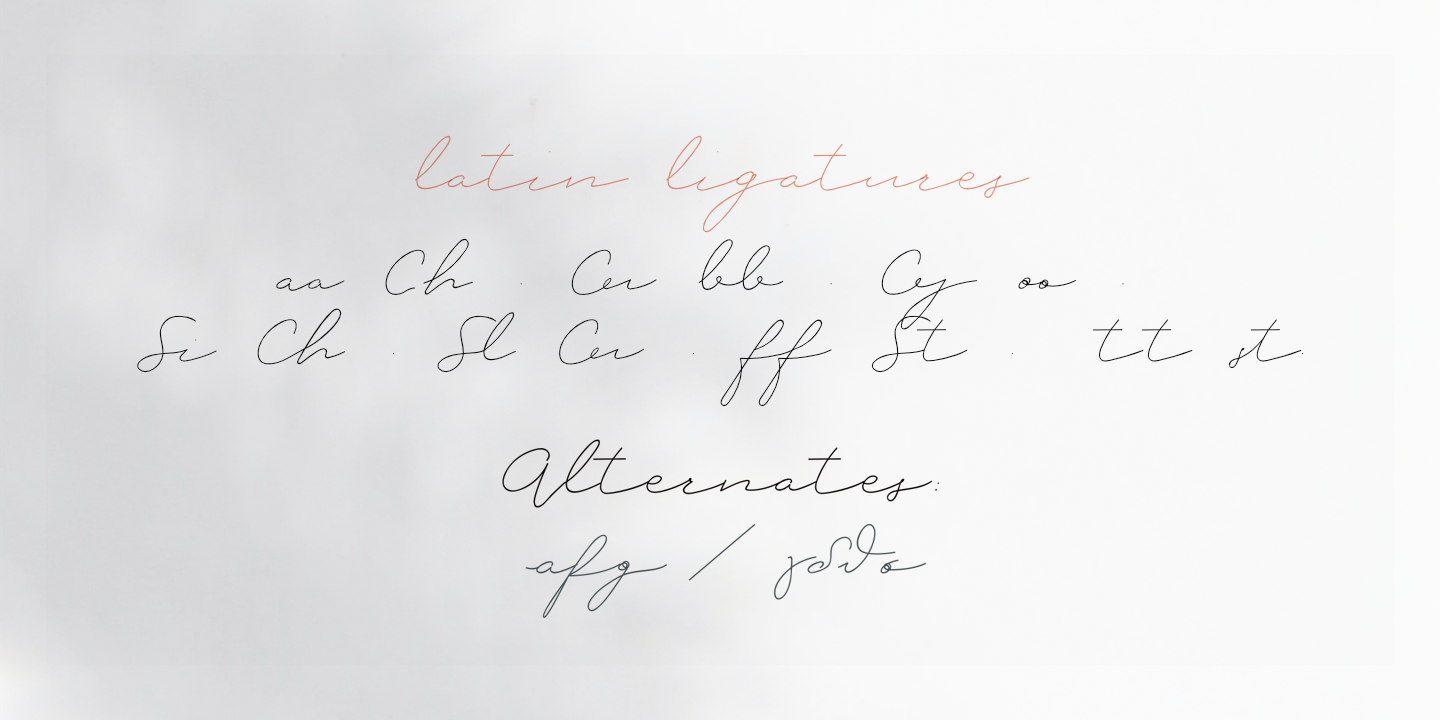 latin ligatures
aa Ch . Cer bb . Cy oo .
Si Ch . Sl Cer . ff St . tt st.
Alternates:
afg / γδθο